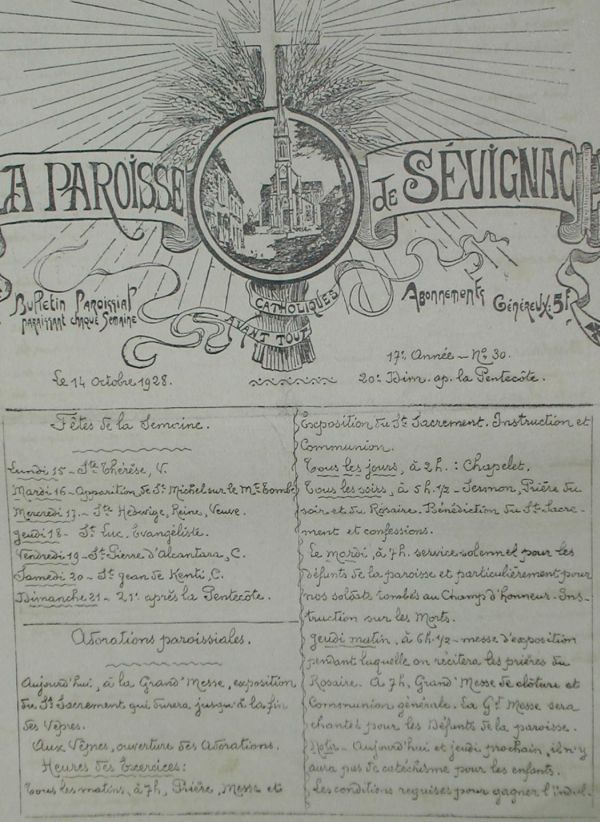 LA PAROISSE
de SÉVIGNAC
Bulletin Paroissial
paraissant chaque Semaine
CATHOLIQUES
AVANT TOUT
Abonnements
Généreux: 5f
17e Année - No 30.
Le 14 Octobre 1928.
20e Dim. ap. la Pentecôte.
Fêtes de la Semaine.
Lundi 15 - Ste Thérèse, V.
Mardi 16 - Apparition de St Michel sur le Mt Tombe
Mercredi 17 - Ste Hedwige, Reine, Veuve.
Jeudi 18 - St Luc, Evangéliste.
Vendredi 19 - St Pierre d'Alcantara, C.
Samedi 20 - St Jean de Kenti, C.
Dimanche 21 - 21e après la Pentecôte.
Adorations paroissiales.
Aujourd'hui, à la Grand' Messe, exposition
du St Sacrement qui durera jusqu'à la fin
des Vêpres.
Aux Vêpres, ouverture des Adorations.
Heures des Exercices:
Tous les matins, à 7h, Prière, Messe et
Exposition du St Sacrement. Instruction et
Communion.
Tous les jours, à 2h. : Chapelet.
Tous les soirs, à 5h.1/2 - Sermon, Prière du
soir et du Rosaire. Bénédiction du St Sacre-
ment et confessions.
Le Mardi, à 7h. service solennel pour les
défunts de la paroisse et particulièrement pour
nos soldats tombés au Champ d'honneur. Ins-
truction sur les Morts.
Jeudi matin, à 6h.1/2 - messe d'exposition
pendant laquelle on récitera les prières du
Rosaire. A 7h, Grand' Messe de clôture et
Communion générale. La Gd Messe sera
chantée pour les Défunts de la paroisse.
Nota - Aujourd'hui et jeudi prochain, il n'y
aura pas de catéchisme pour les enfants.
Les conditions requises pour gagner l'indul-